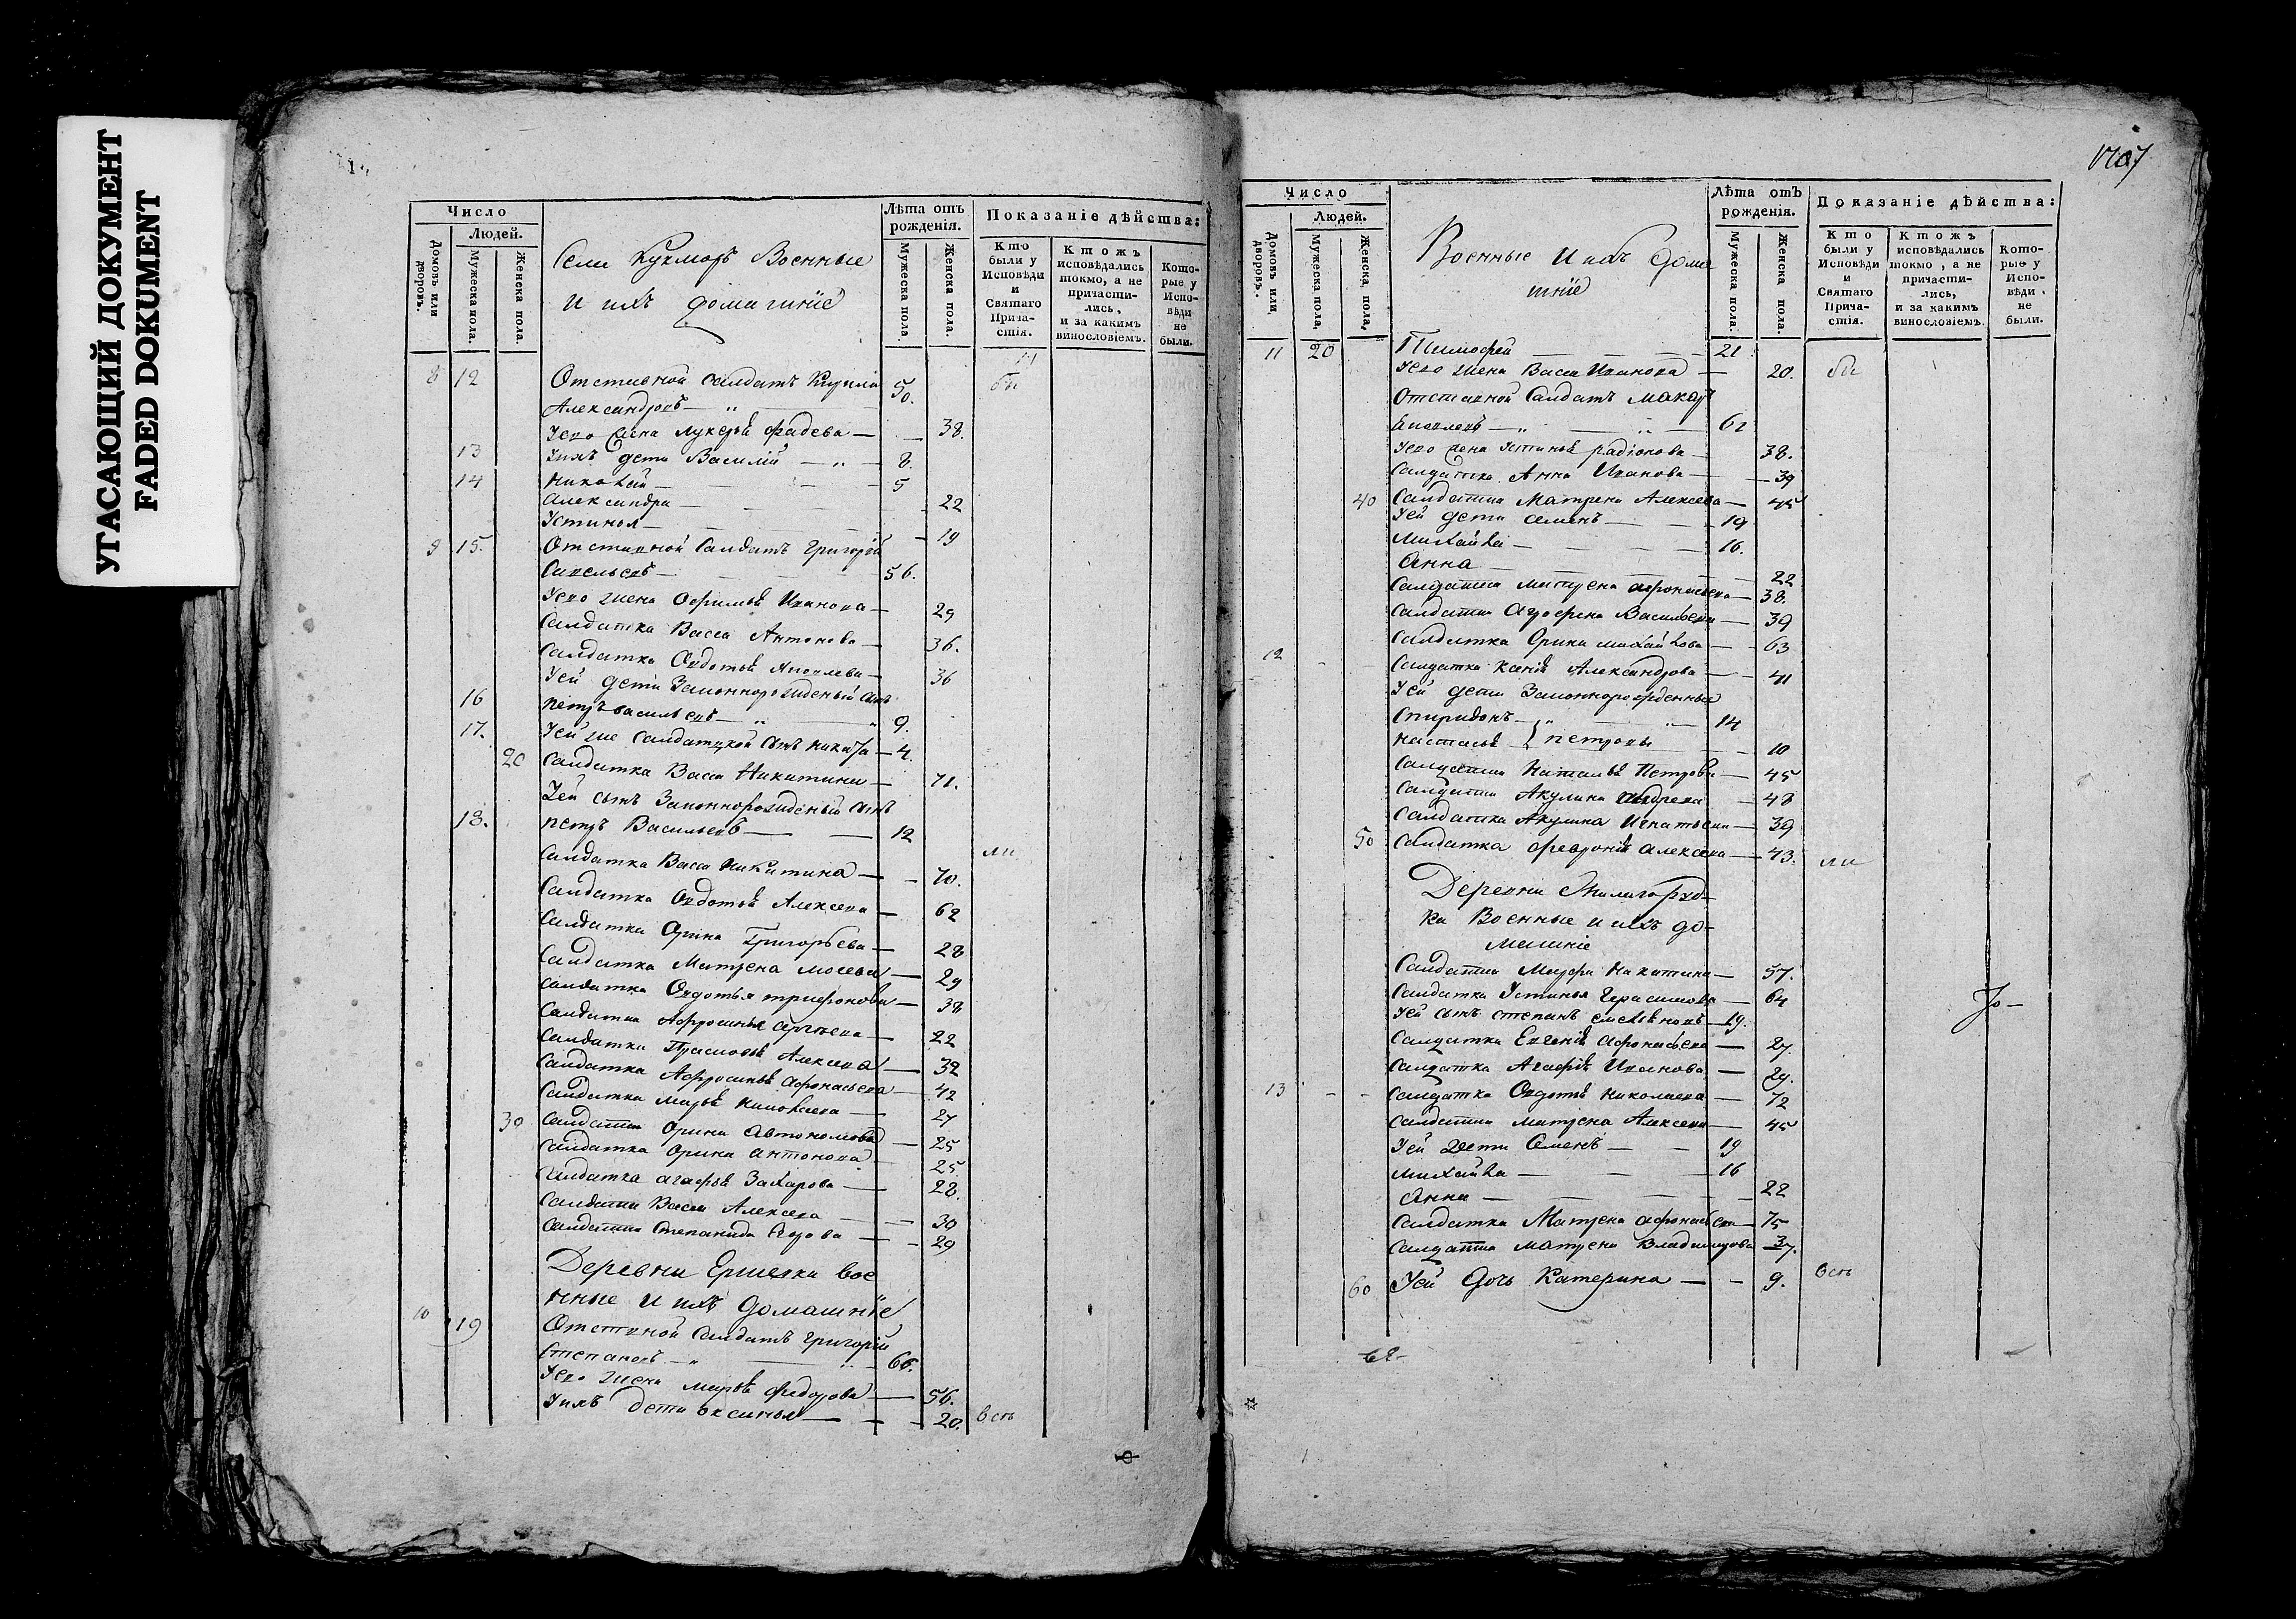 УГАСАЮЩИЙ ДОКУМЕНТ
FADED DOKUMENT
Число
Людей.
Домовъ или дворовъ.
Мужеска пола.
Женска пола.
Села Кукморъ Военные
и ихъ домашнїе
Лѣта отъ рожденія.
Мужеска пола
Женска пола.
Показаніе дѣйства:
Кто были у Исповѣди и Святаго Прича-стія.
Ктожъ исповѣдались токмо, а не причасти-лись, и за какимъ винословіемъ.
Кото-рые у Испо-вѣди не были.
8 12 Отставной салдатъ Кирила 50. бы
Александровъ — „
Его жена Лукерья Фадева — 38.
13 Ихъ дети Василїй — „ — 8.
14 Николай — 5
Александра — 22
Устинья — 19
9 15. Отставной Салдатъ Григорїй
Савельевъ — 56.
Его жена Офимья Иванова — 29
Салдатка Васса Антонова — 36.
Салдатка Овдотья — 36
Ей дети Законнорожденый сынъ
16 Петръ Васильевъ — „ 9.
17. Ей же салдатской сынъ Никита — 4.
20 Салдатка Васса Никитина — 71.
Ей сынъ Законнорожденый сынъ
18. Петръ Васильевъ — 12
ли
Салдатка Васса Никитина — 70.
Салдатка Овдотья Алексева — 62
Салдатка Орина Григорьева — 28
Салдатка Матрена Мосева — 29
Салдатка Овдотья Трифонова — 38
Салдатка Афросинья Сергеева — 22
Салдатка Прасковья Алексева — 32
Салдатка Афросинья Афонасьева — 42
Салдатка Марья Николаева — 27
30 Салдатка Орина Автономова — 25
Салдатка Орина Антонова — 25
Салдатка Агафья Захарова — 28.
Салдатка Васса Алексева — 30
Салдатка Степанида Егорова — 29
Деревни Ершевки вое
нные и ихъ домашнїе
10 19 Отставной Салдатъ Григорїй
Степановъ — „ 66.
Его жена Марья Федорова — 56.
Ихъ дети Оксинья — 20. весть
Число
Людей.
Домовъ или дворовъ.
Мужеска пола,
Женска пола,
Военные и ихъ дома
шнїе
Лѣта отъ рожденія.
Мужеска пола.
Женска пола.
Показаніе дѣйства:
Кто были у Исповѣди и Святаго Прича-стія.
Ктожъ исповѣдались токмо, а не причасти-лись, и за какимъ винословіемъ.
Кото-рые у Испо-вѣди не были.
11 20 Тимофей — 21
Его жена Васса Иванова — 20. бы
Отставной Салдатъ Макаръ
— „ 62
Его жена Устинья Радїонова — 38.
Салдатка Анна Иванова — 39
40 Салдатка Матрена Алексева — 45
Ей дети Семенъ — 19
Михайла — 16.
Анна — 22
Салдатка Матрена Афонасьева — 38.
Салдатка Агрофена Васильева — 39
Салдатка Орина Михайлова — 63
12 Салдатка Ксенїя Александрова — 41
Ей дети Законнорожденные
Спиридонъ — „ 14
Настасья } Петровы — 10
Салдатка Наталья Петрова — 45
Салдатка Акулина Андреева — 48
Салдатка Акулина Игнатьева — 39
50 Салдатка Феврония Алексева — 43. ли
Деревни
ка Военные и ихъ до-
машніе
Салдатка Марфа Никитина — 57.
Салдатка Устинья Герасимова — 64
Ей сынъ Степанъ Емельяновъ — 19.
Салдатка Евгения Афонасьева — 27.
Салдатка Агафья Иванова — 29.
13 Салдатка Овдотья Николаева — 72
Салдатка Матрена Алексева — 45
Ей дети Семенъ — 19
Михайла — 16
Анна — 22
Салдатка Матрена Афонасьева — 75
Салдатка Матрена Владимирова — 37.
60 Ей дочь Катерина — 9. весть